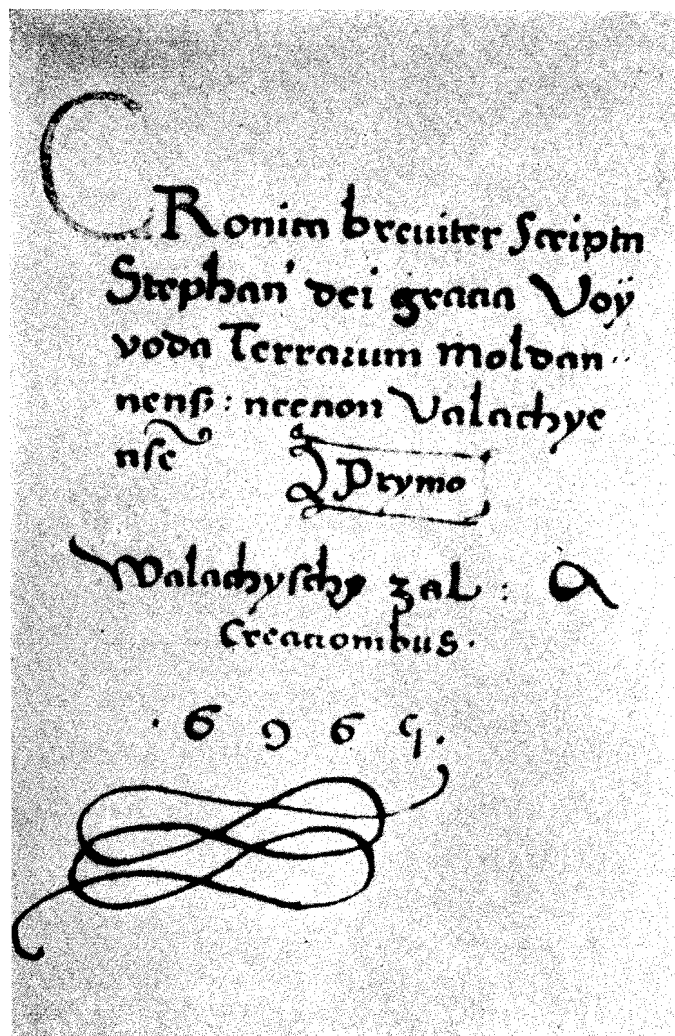 CRonica breuiter Scripta
Stephan' dei gracia Voÿ
voda Terrarum moldan
nenß: necnon Valachye
nse Prymo
Walachysche zal: A
Creacionibus.
.6965.